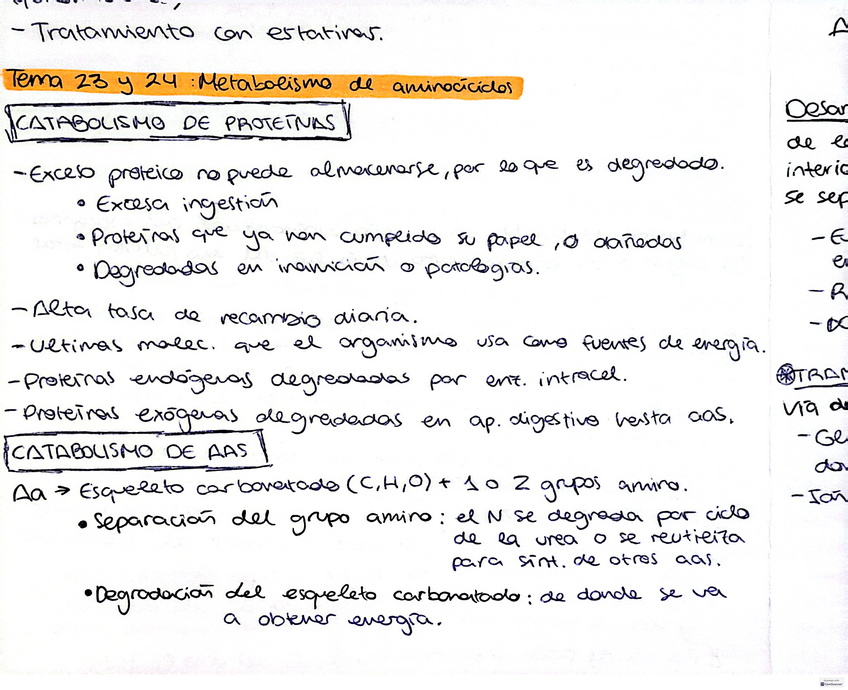 - Tratamiento con estatinas.
Tema 23 y 24: Metabolismo de aminoácidos
CATABOLISMO DE PROTEÍNAS
- Exceso proteico no puede almacenarse, por lo que es degradado.
• Excesa ingestión
• Proteínas que ya han cumplido su papel, o dañadas
• Degradadas en inanición o patologías.
- Alta tasa de recambio diaria.
- Ultimas molec. que el organismo usa como fuentes de energía.
- Proteínas endógenas degradadas por enz. intracel.
- Proteínas exógenas degradadas en ap. digestivo hasta aas.
CATABOLISMO DE AAS
Aa → Esqueleto carbonatado (C, H, O) + 1 o 2 grupos amino.
• Separación del grupo amino: el N se degrada por ciclo
de la urea o se reutiliza
para sínt. de otros aas.
• Degradación del esqueleto carbonatado: de donde se va
a obtener energía.
Desar
de
interio
se sep
- E
- R
TRAM
vía de
- Ge
- Ion